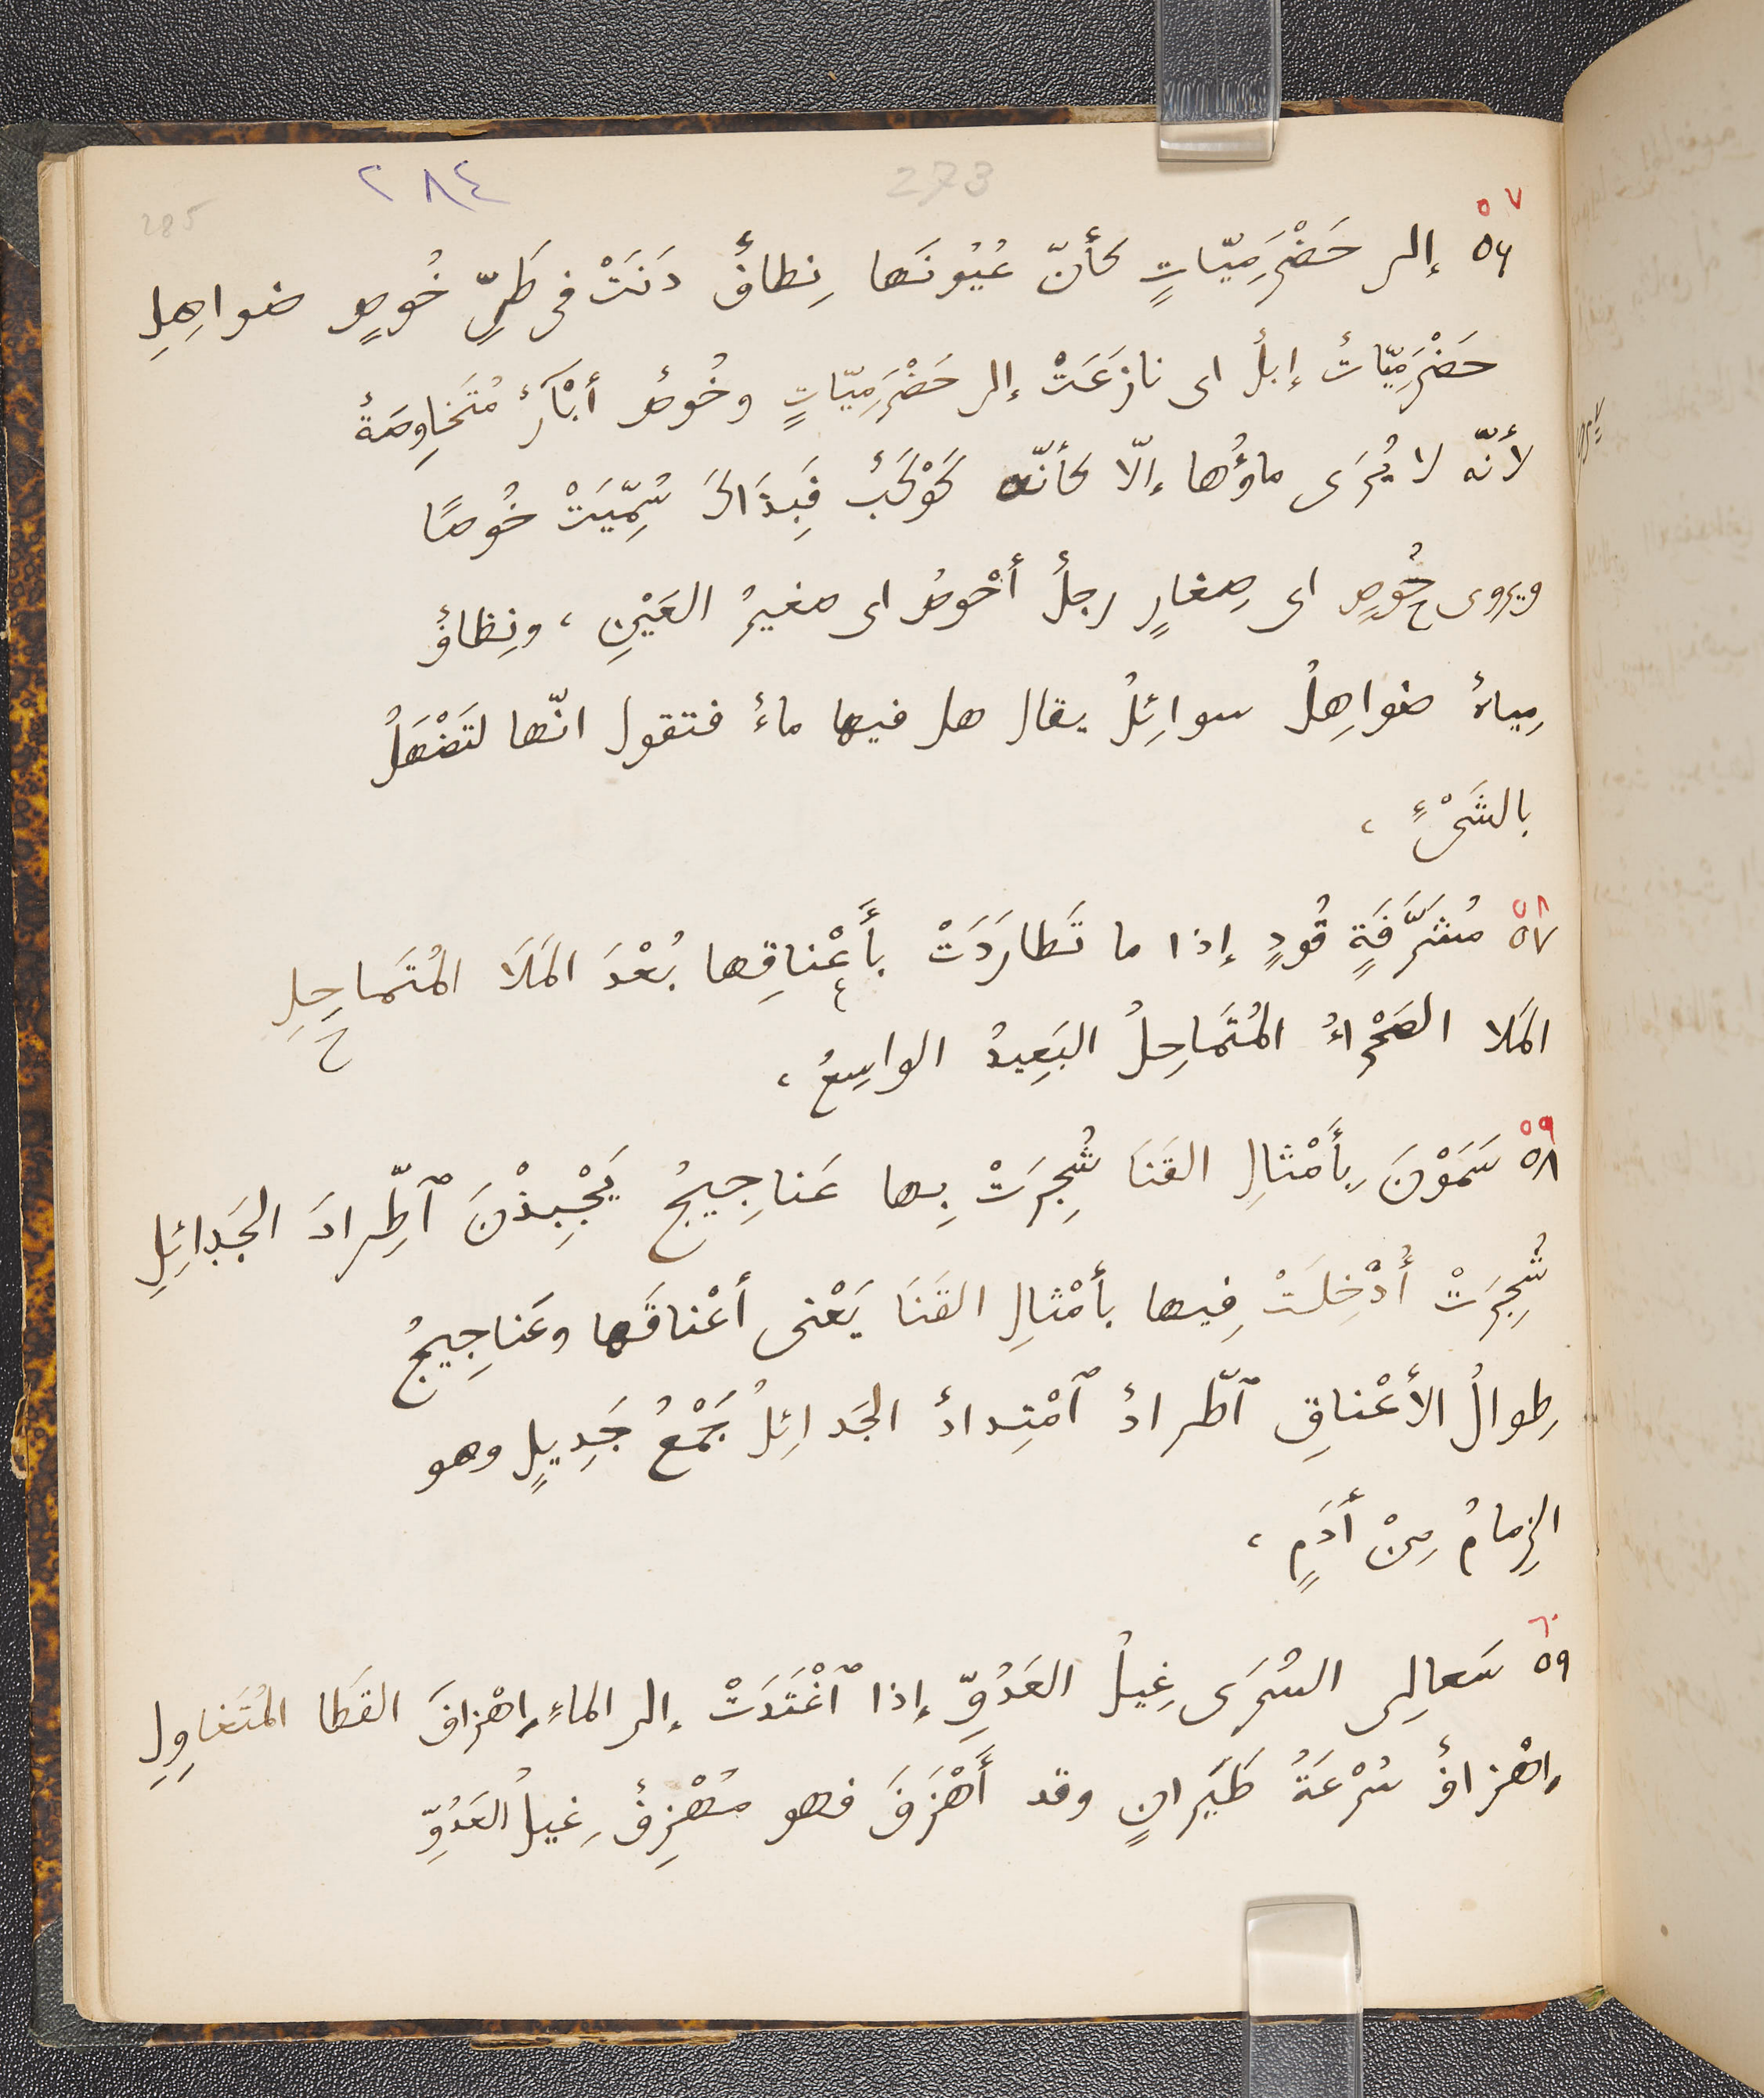 ٢٨٤ 273 285
٥٧
٥٦ إلى حَضْرَمِيّاتٍ كأنّ عُيُونَها نِطافٌ دَنَتْ فى طَىِّ خُوصٍ ضواهِلِ
حَضْرَمِيّاتٌ إبلٌ اى نازَعَتْ إلى حَضْرَمِيّاتٍ وخُوصٌ أبْآرٌ مُتَخاوِصَةٌ
لأنّه لا يُرَى ماؤُها إلّا كأنّه كَوْكَبٌ فَبِذَاكَ سُمِّيَتْ خُوصًا
ويروى حُوصٍ اى صِغارٍ رجلٌ أحْوصُ اى صغيرُ العَيْنِ، ونِطافٌ
مِياهٌ ضواهِلُ سوائِلُ يقال هل فيها ماءٌ فتقول انّها لتَضْهَلُ
بالشَىْءٍ،
٥٨
٥٧ مُشَرَّفَةٍ قُودٍ إذا ما تَطارَدَتْ بأَعْناقِها بُعْدَ المَلَا المُتَماحِلِ
المَلا الصَحْراءُ المُتَماحِلُ البَعِيدُ الواسِعُ،
٥٩
٥٨ سَمَوْنَ بِأَمْثالِ القَنَا شُجِرَتْ بِها عَناجِيجُ يَجْبِذْنَ ٱطِّرادَ الجَدائِلِ
شُجِرَتْ أُدْخِلَتْ فِيها بأمْثالِ القَنَا يَعْنى أعْناقَها وعَناجِيجُ
طِوالُ الأعْناقِ ٱطّرادٌ ٱمْتِدادٌ الجَدائِلُ جَمْعُ جَدِيلٍ وهو
الزِمامُ مِنْ أدَمٍ،
٦٠
٥٩ سَعالِى السُرَى غِيلُ العَدُوِّ إذا ٱغْتَدَتْ إلى الماءِ إهْزافَ القَطا المُتَغاوِلِ
إهْزافٌ سُرْعَةُ طَيَرانٍ وقد أَهْزَفَ فهو مُهْزِفٌ غِيلُ العَدُوِّ